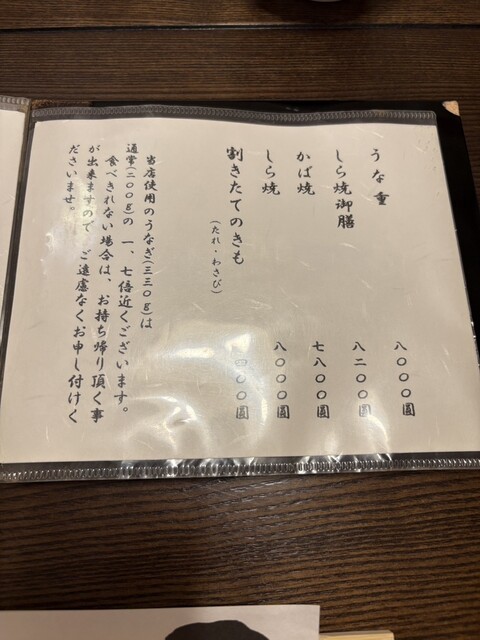 うな重 八〇〇〇圓
しら焼御膳 八二〇〇圓
かば焼 七八〇〇圓
しら焼 八〇〇〇圓
割きたてのきも 四〇〇圓
(たれ・わさび)
当店使用のうなぎ(三三〇g)は
通常(二〇〇g)の一、七倍近くございます。
食べきれない場合は、お持ち帰り頂く事
が出来ますので ご遠慮なくお申し付けく
ださいませ。